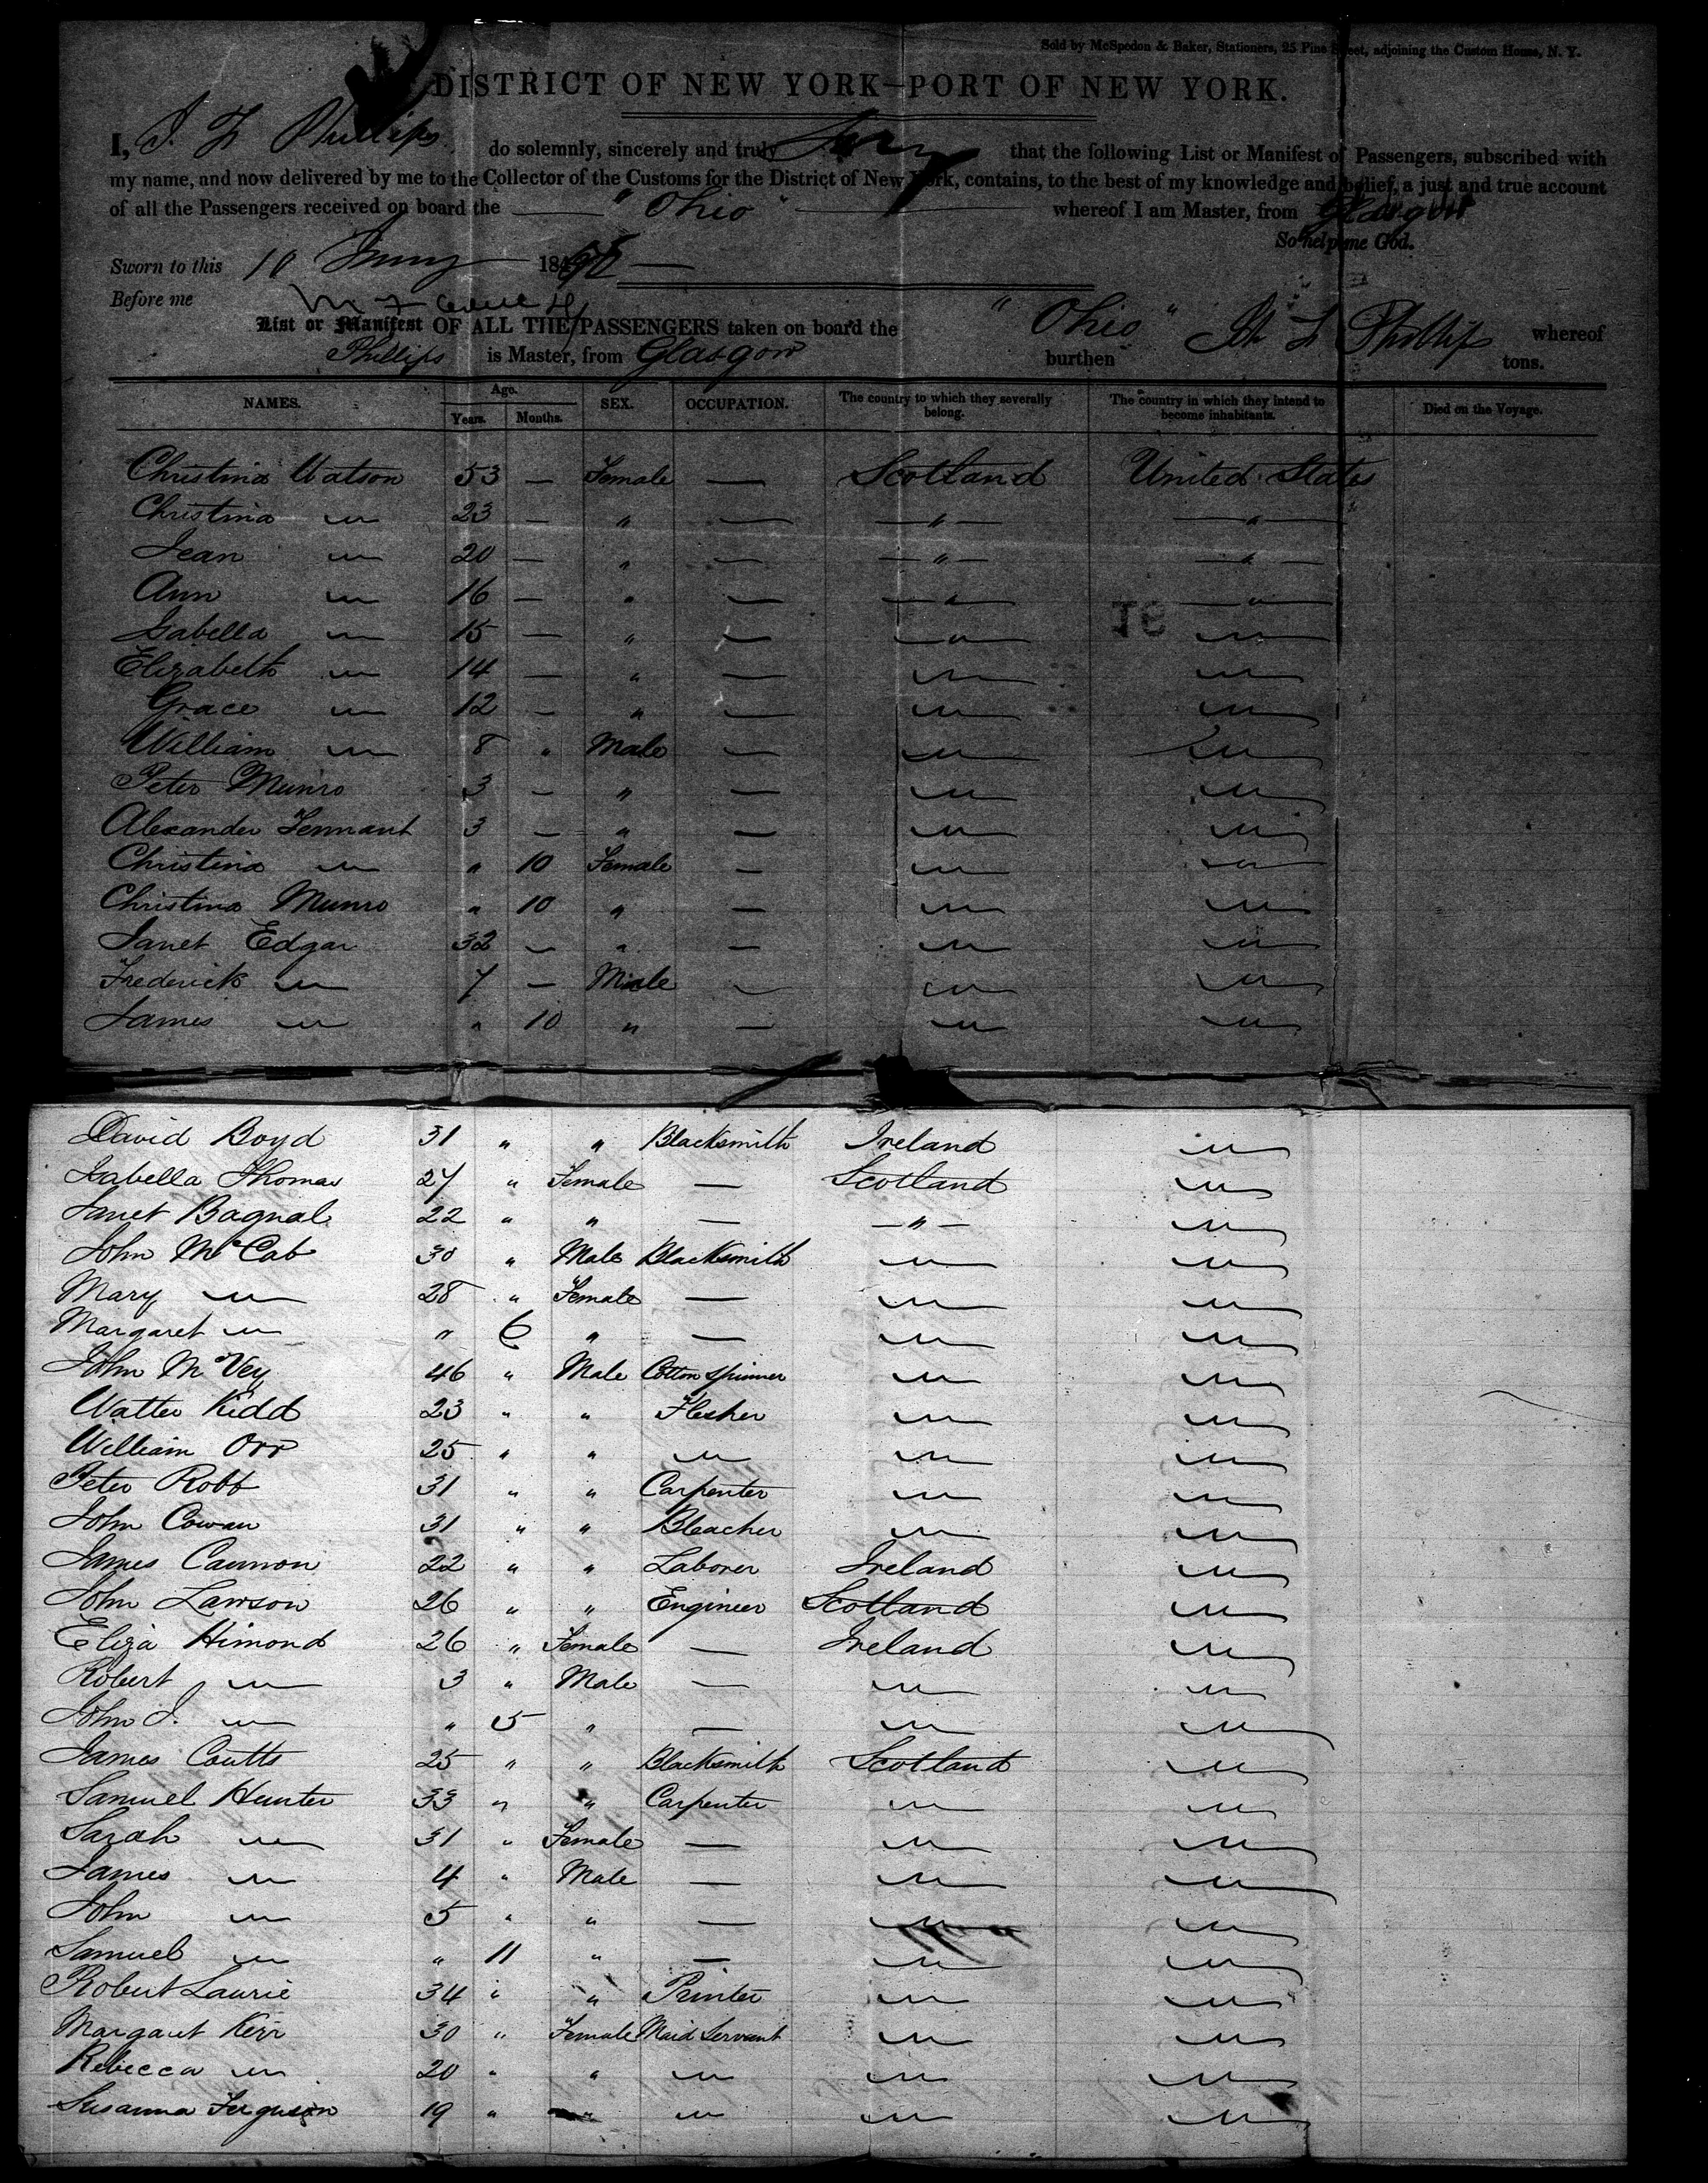 Sold by McSpedon & Baker, Stationers, 25 Pine Street, adjoining the Custom House, N. Y.
DISTRICT OF NEW YORK—PORT OF NEW YORK.
I, Phillips do solemnly, sincerely and truly that the following List or Manifest of Passengers, subscribed with
my name, and now delivered by me to the Collector of the Customs for the District of New York, contains, to the best of my knowledge and belief, a just and true account
of all the Passengers received on board the — " Ohio " — whereof I am Master, from Glasgow
So help me God.
Sworn to this 10 184
Before me
List or Manifest OF ALL THE PASSENGERS taken on board the " Ohio " Phillips whereof
Phillips is Master, from Glasgow burthen tons.
NAMES. Age. Years. Months. SEX. OCCUPATION. The country to which they severally belong. The country in which they intend to become inhabitants. Died on the Voyage.
Christina Watson 53 — Female — Scotland United States
Christina " 23 — " — — " — — " —
Jean " 20 — " — — " — — " —
Ann " 16 — " — — " — — " —
Isabella " 15 — " — — " — "
Elizabeth " 14 — " — " "
Grace " 12 — " — " "
William " 8 " Male — " "
Peter Munro 3 — " — " "
Alexander Tennant 3 — " — " "
Christina " " 10 Female — " "
Christina Munro " 10 " — " "
Janet Edgar 32 — " — " "
Frederick " 7 — Male — " "
James " " 10 " — " "
David Boyd 31 " " Blacksmith Ireland "
Isabella Thomas 27 " Female — Scotland "
Janet Bagnal 22 " " — — " — "
John McCab 30 " Male Blacksmith " "
Mary " 28 " Female — " "
Margaret " " 6 " — " "
John McVey 46 " Male Cotton Spinner " "
Walter Kidd 23 " " Flesher " "
William Orr 25 " " " " "
Peter Robb 31 " " Carpenter " "
John Cowan 31 " " Bleacher " "
James Cannon 22 " " Laborer Ireland "
John Lawson 26 " " Engineer Scotland "
Eliza Himond 26 " Female — Ireland "
Robert " 3 " Male — " "
John J. " " 5 " — " "
James Coutts 25 " " Blacksmith Scotland "
Samuel Hunter 33 " " Carpenter " "
Sarah " 31 " Female — " "
James " 4 " Male — " "
John " 5 " " — " "
Samuel " " 11 " — " "
Robert Laurie 34 " " Printer " "
Margaret Kerr 30 " Female Maid Servant " "
Rebecca " 20 " " " " "
Susanna Ferguson 19 " " " " "